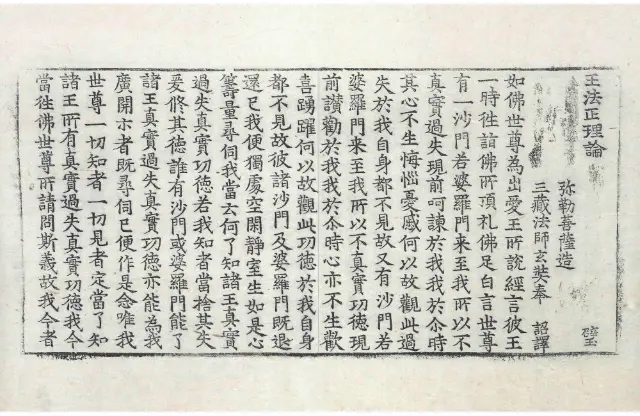 王法正理論
弥勒菩薩造
三藏法師玄奘奉 詔譯
如佛世尊為出愛王所說經言彼王
一時往詣佛所頂礼佛足白言世尊
有一沙門若婆羅門来至我所以不
真實過失現前呵諫於我我於尒時
其心不生悔惱憂慼何以故觀此過
失於我自身都不見故又有沙門若
婆羅門来至我所以不真實功徳現
前讃勸於我我於尒時心亦不生歡
喜踴躍何以故觀此功徳於我自身
都不見故彼諸沙門及婆羅門既退
還已我便獨處空閑静室生如是心
籌量尋伺我當云何了知諸王真實
過失真實功徳若我知者當捨其失
爰修其徳誰有沙門或婆羅門能了
諸王真實過失真實功徳亦能為我
廣開示者既尋伺已便作是念唯我
世尊一切知者一切見者定當了知
諸王所有真實過失真實功徳我今
當往佛世尊所請問斯義故我今者